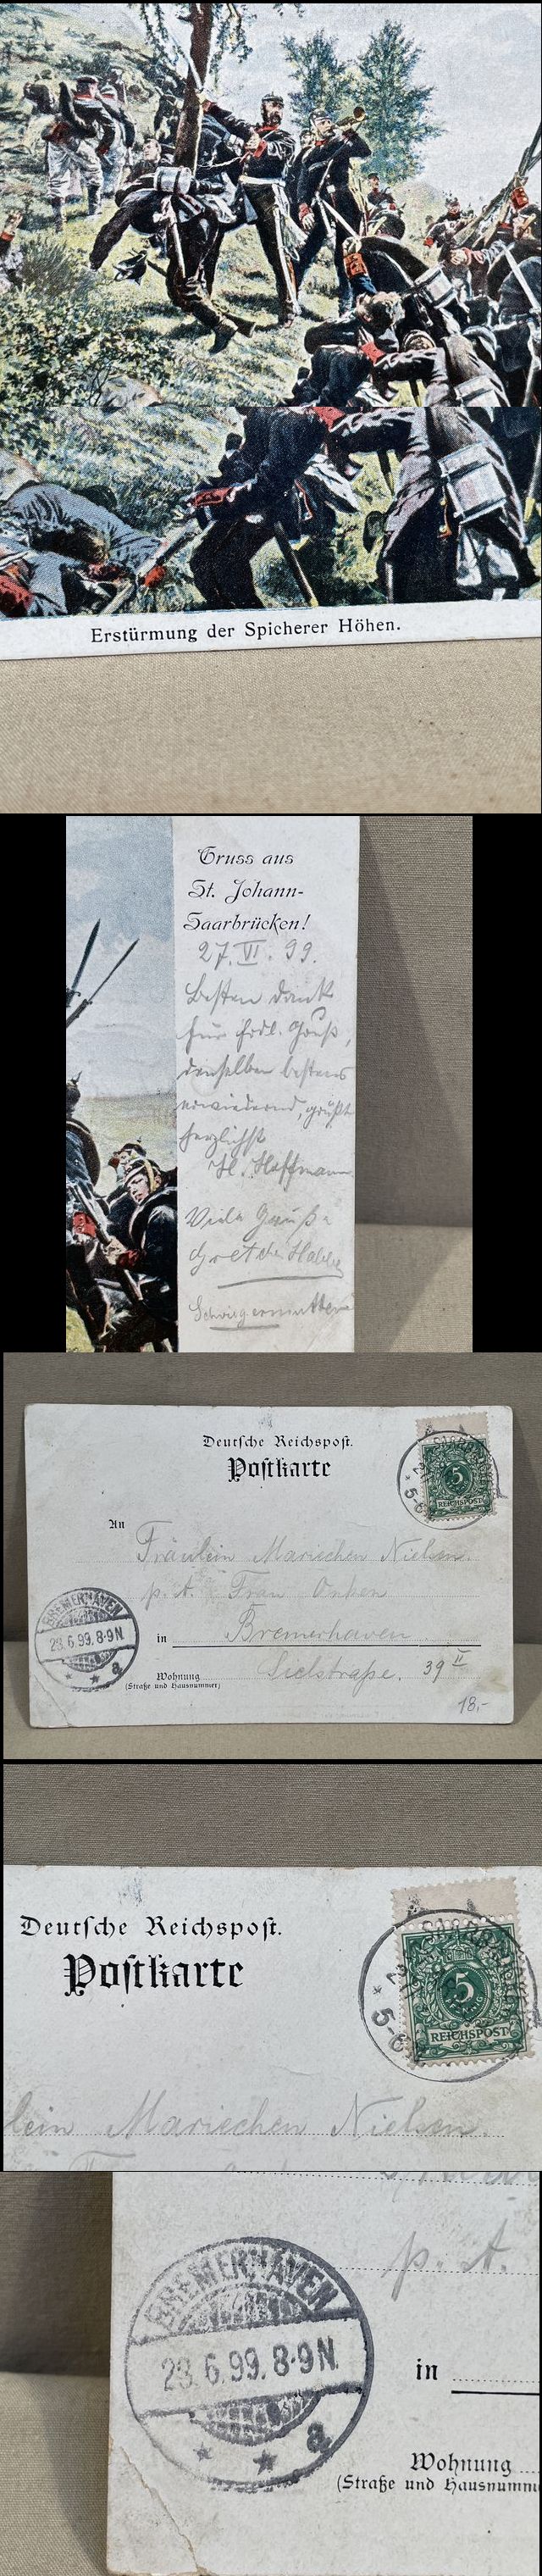 Erstürmung der Spicherer Höhen.
Gruss aus
St. Johann-
Saarbrücken!
27. VI. 99.
Besten Dank
für frdl. Gruß,
denselben bestens
erwiedernd, grüßt
herzlichst
H. Hoffmann
Viele Grüße
Gretchen
Deutsche Reichspost.
Postkarte
5
REICHSPOST
5-6
An Fräulein Mariechen Nielsen.
p. A. Frau Onken
in Bremerhaven
Wohnung Sielstraße. 39 II
(Straße und Hausnummer)
18,-
BREMERHAVEN
28.6.99.8-9N.
a
Deutsche Reichspost.
Postkarte
5
REICHSPOST
5-6
lein Mariechen Nielsen.
BREMERHAVEN
28.6.99.8-9N.
a
p. A.
in
Wohnung
(Straße und Hausnumm